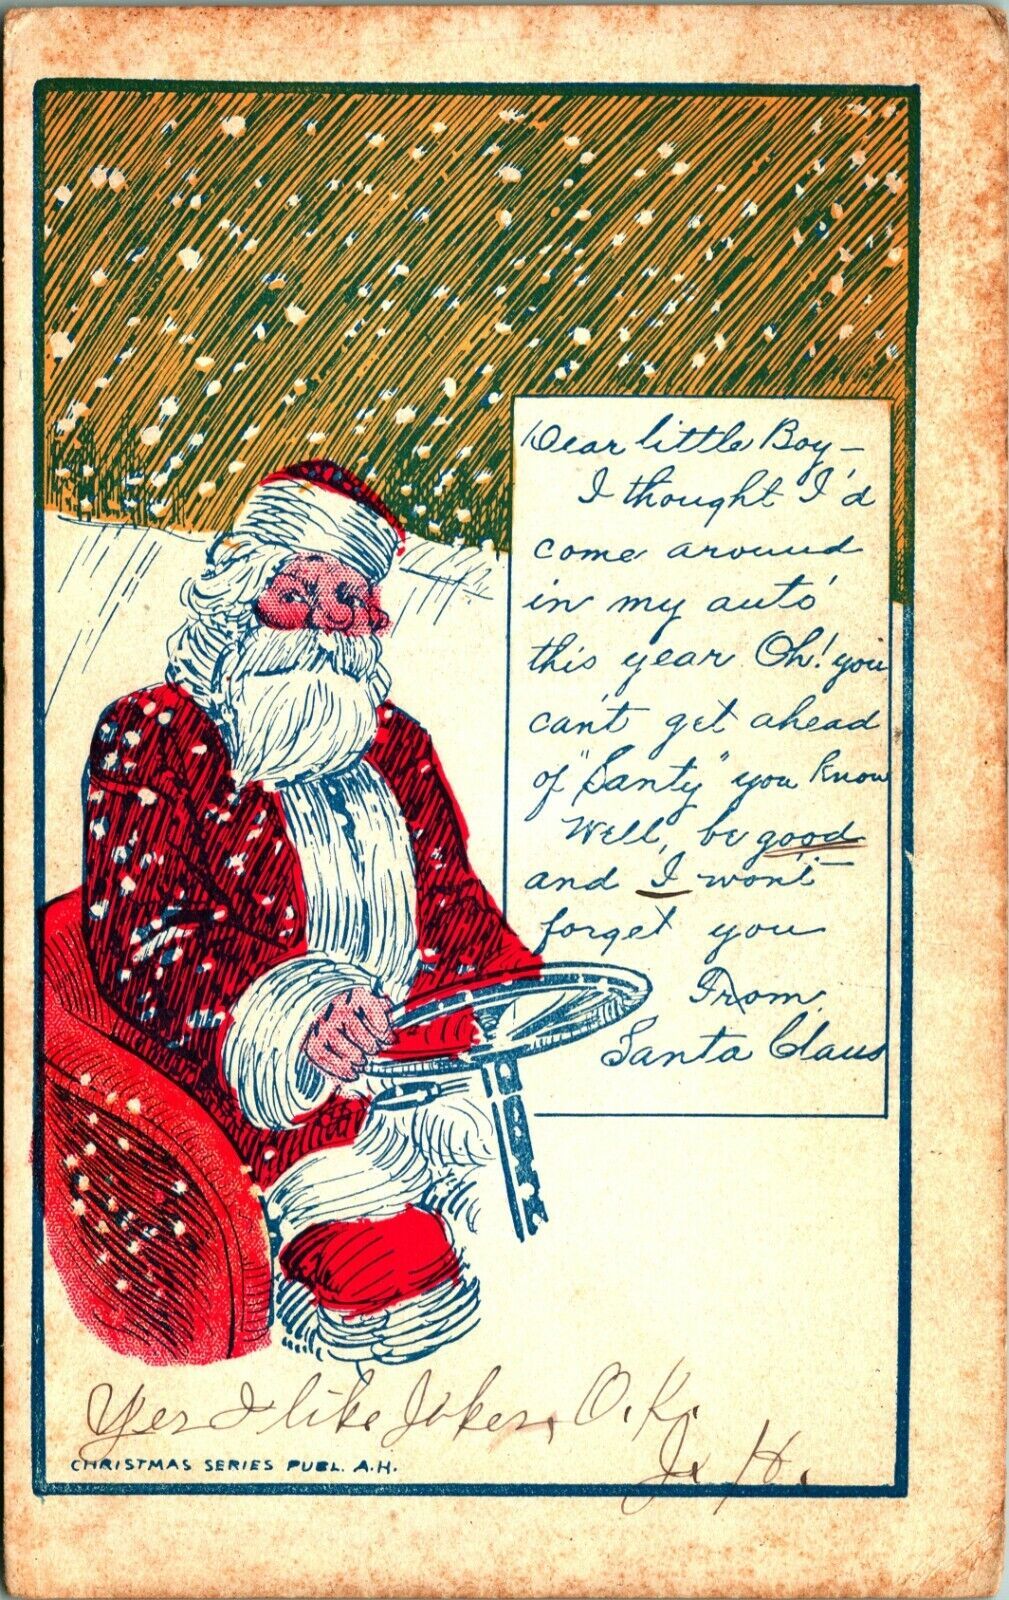 Dear little Boy—
I thought I'd
come around
in my auto'
this year Oh! you
can't get ahead
of "Santy" you know
Well, be good
and I won't
forget you
From
Santa Claus
Yes I like Jokes, O.K.
H.
CHRISTMAS SERIES PUBL. A.H.